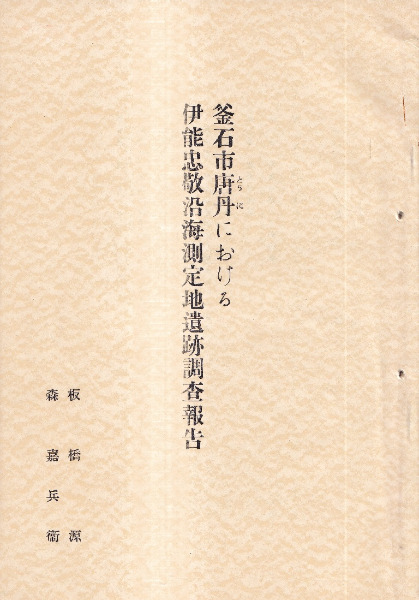 釜石市唐丹における
とう に
伊能忠敬沿海測定地遺跡調査報告
板橋源
森嘉兵衞